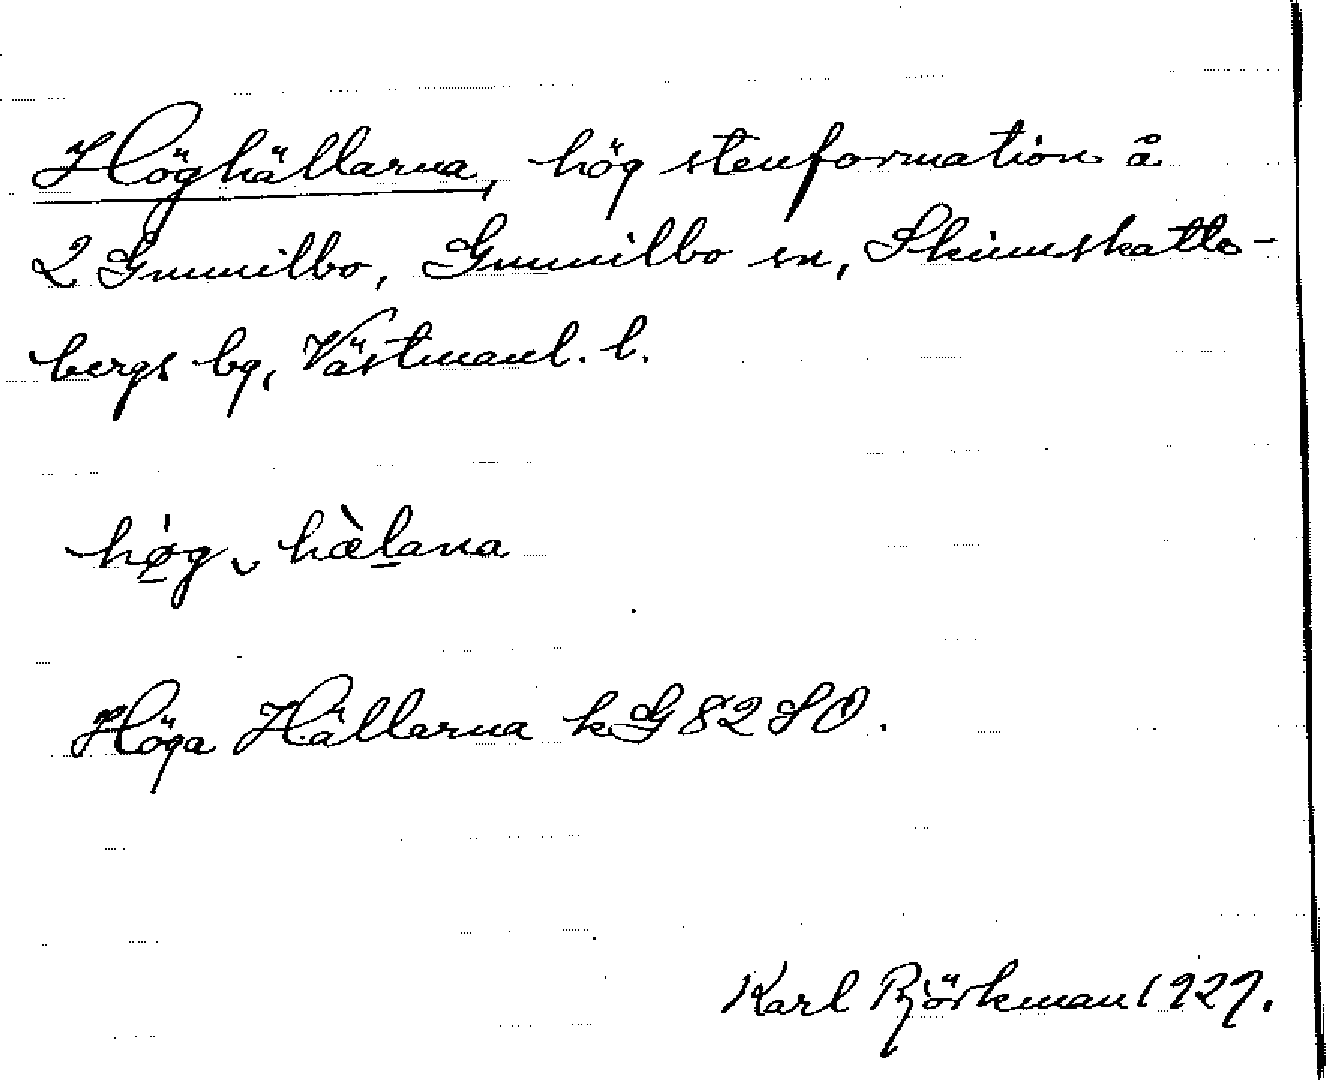 Höghällarna, hög stenformation å
2 Gunnilbo, Gunnilbo sn, Skinnskatte-
bergs bg, Västmanl. l.
hø̱'g ̮ hæ̀ḻana
Höga Hällarna kG 82 SO.
Karl Björkman 1927.